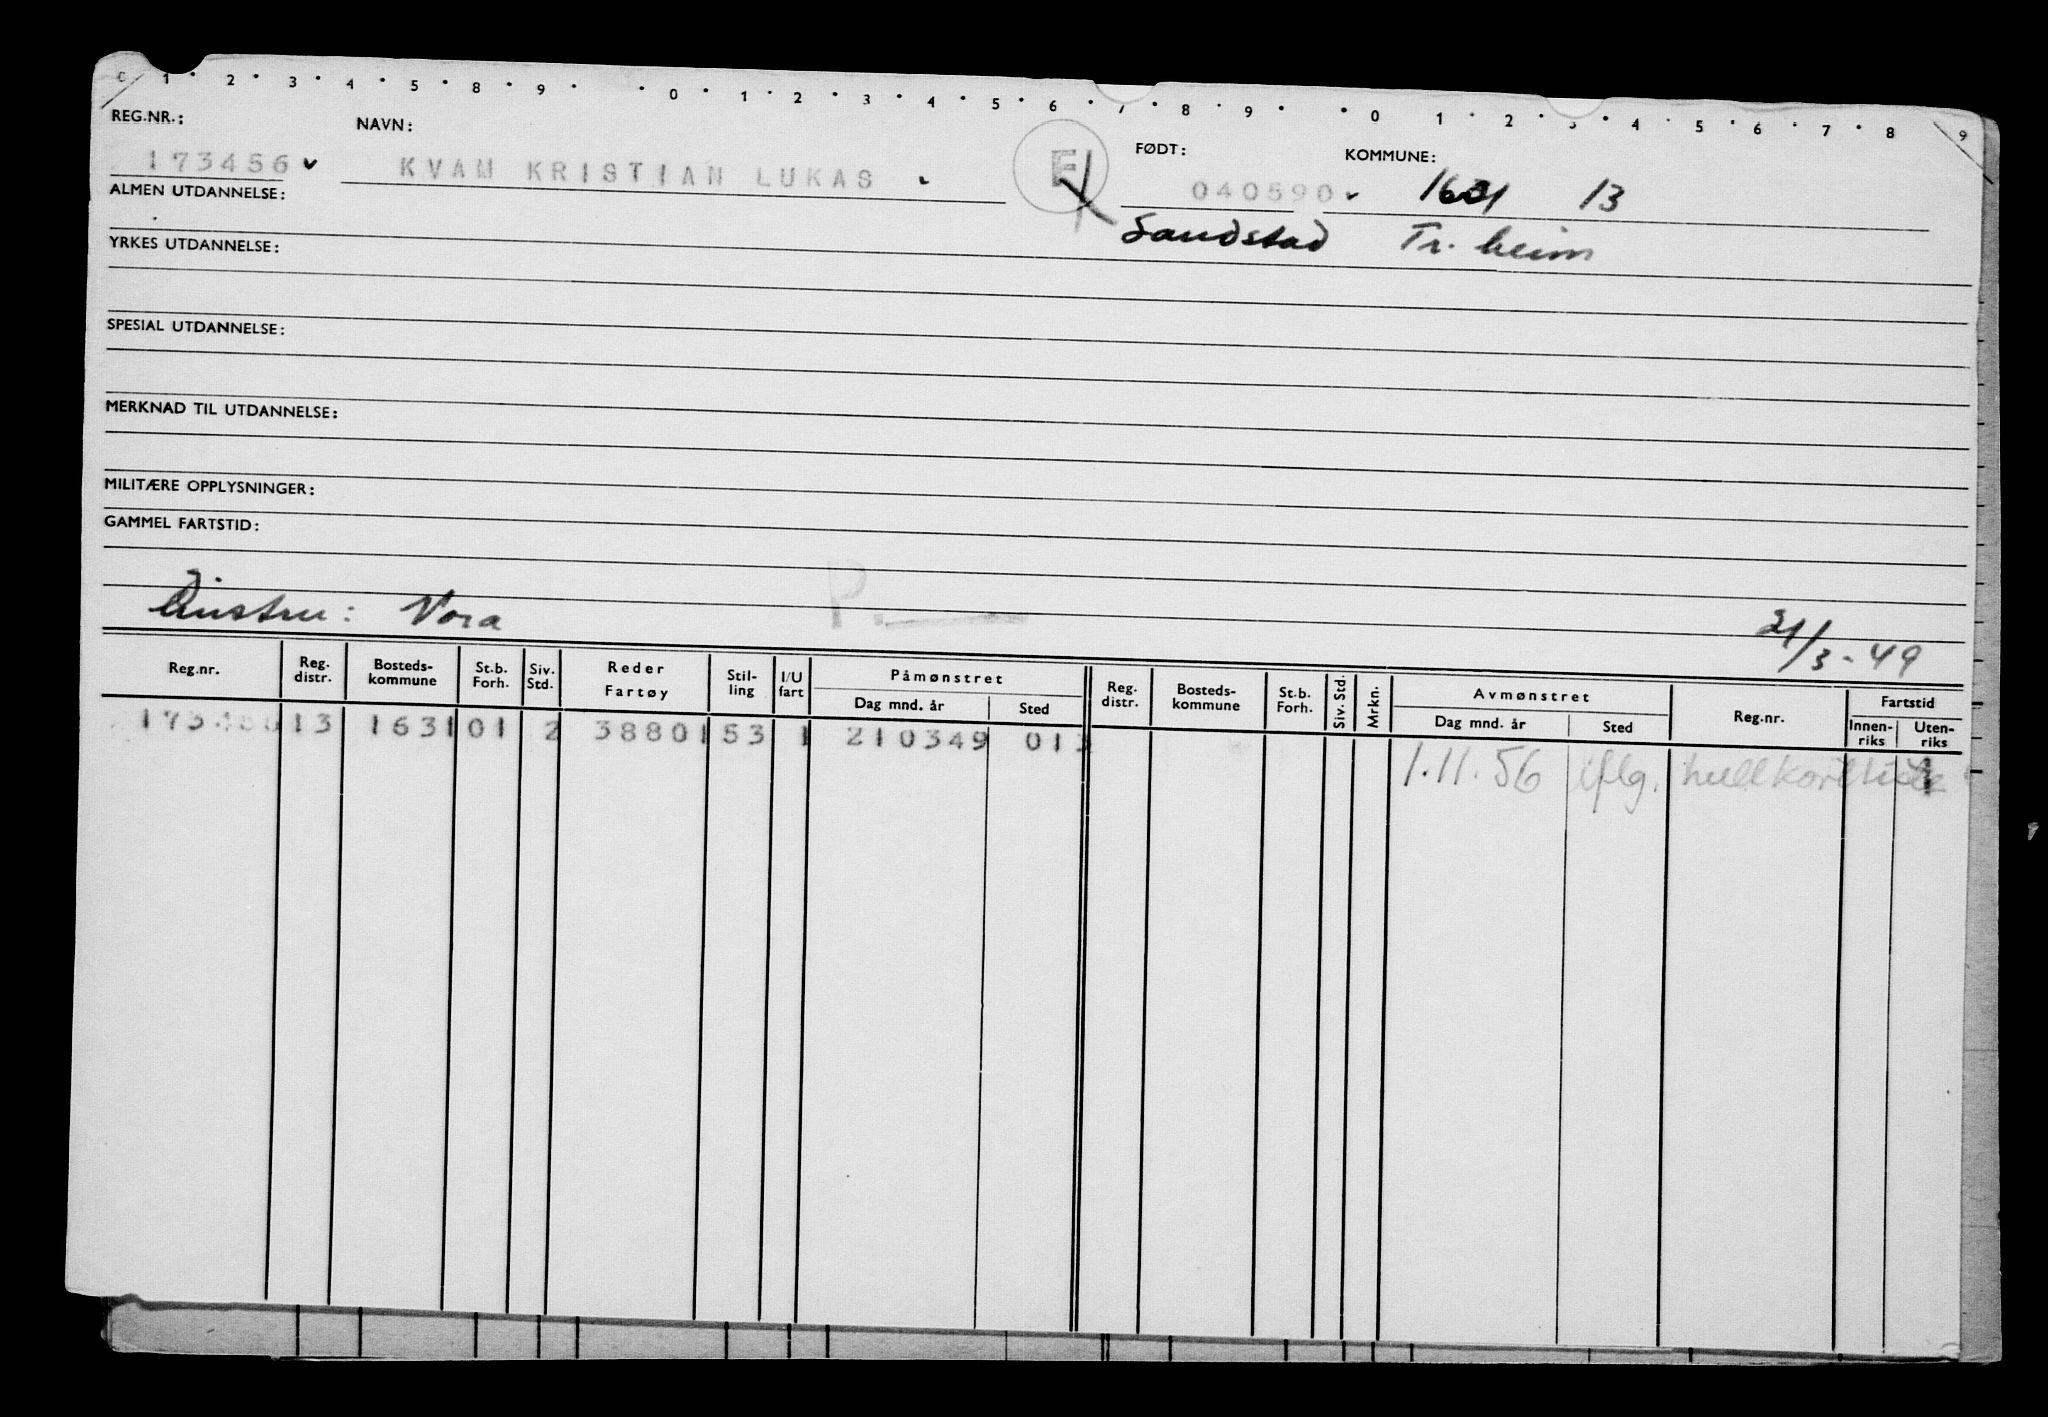 0 1 2 3 4 5 8 9 0 1 2 3 4 5 6 7 8 9 0 1 2 3 4 5 6 7 8 9
REG.NR.: NAVN: FØDT: KOMMUNE:
173456 KVAM KRISTIAN LUKAS E 040590 1631 13
ALMEN UTDANNELSE: Sandstad Tr.heim
YRKES UTDANNELSE:
SPESIAL UTDANNELSE:
MERKNAD TIL UTDANNELSE:
MILITÆRE OPPLYSNINGER:
GAMMEL FARTSTID:
P.
Hustru: Nora 21/3-49
Reg.nr. Reg. distr. Bosteds-kommune St.b. Forh. Siv. Std. Reder Fartøy Stil-ling I/U fart Påmønstret Dag mnd. år Sted Reg. distr. Bosteds-kommune St.b. Forh. Siv. Std. Mrkn. Avmønstret Dag mnd. år Sted Reg.nr. Fartstid Innen-riks Uten-riks
173456 13 1631 01 2 38801 53 1 210349 013
1.11.56 iflg. hullkortliste